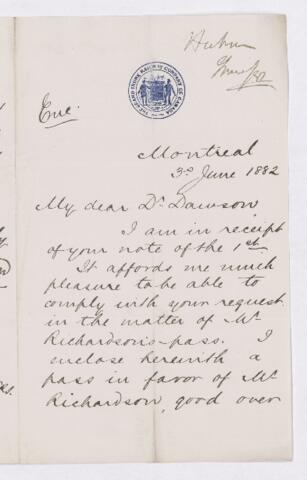 THE GRAND TRUNK RAILWAY COMPANY OF CANADA
Enc.
Montreal
3d June 1882
My dear Dr Dawson
I am in receipt
of your note of the 1st.
It affords me much
pleasure to be able to
comply with your request
in the matter of Mr
Richardson's pass. I
enclose herewith a
pass in favor of Mr
Richardson, good over